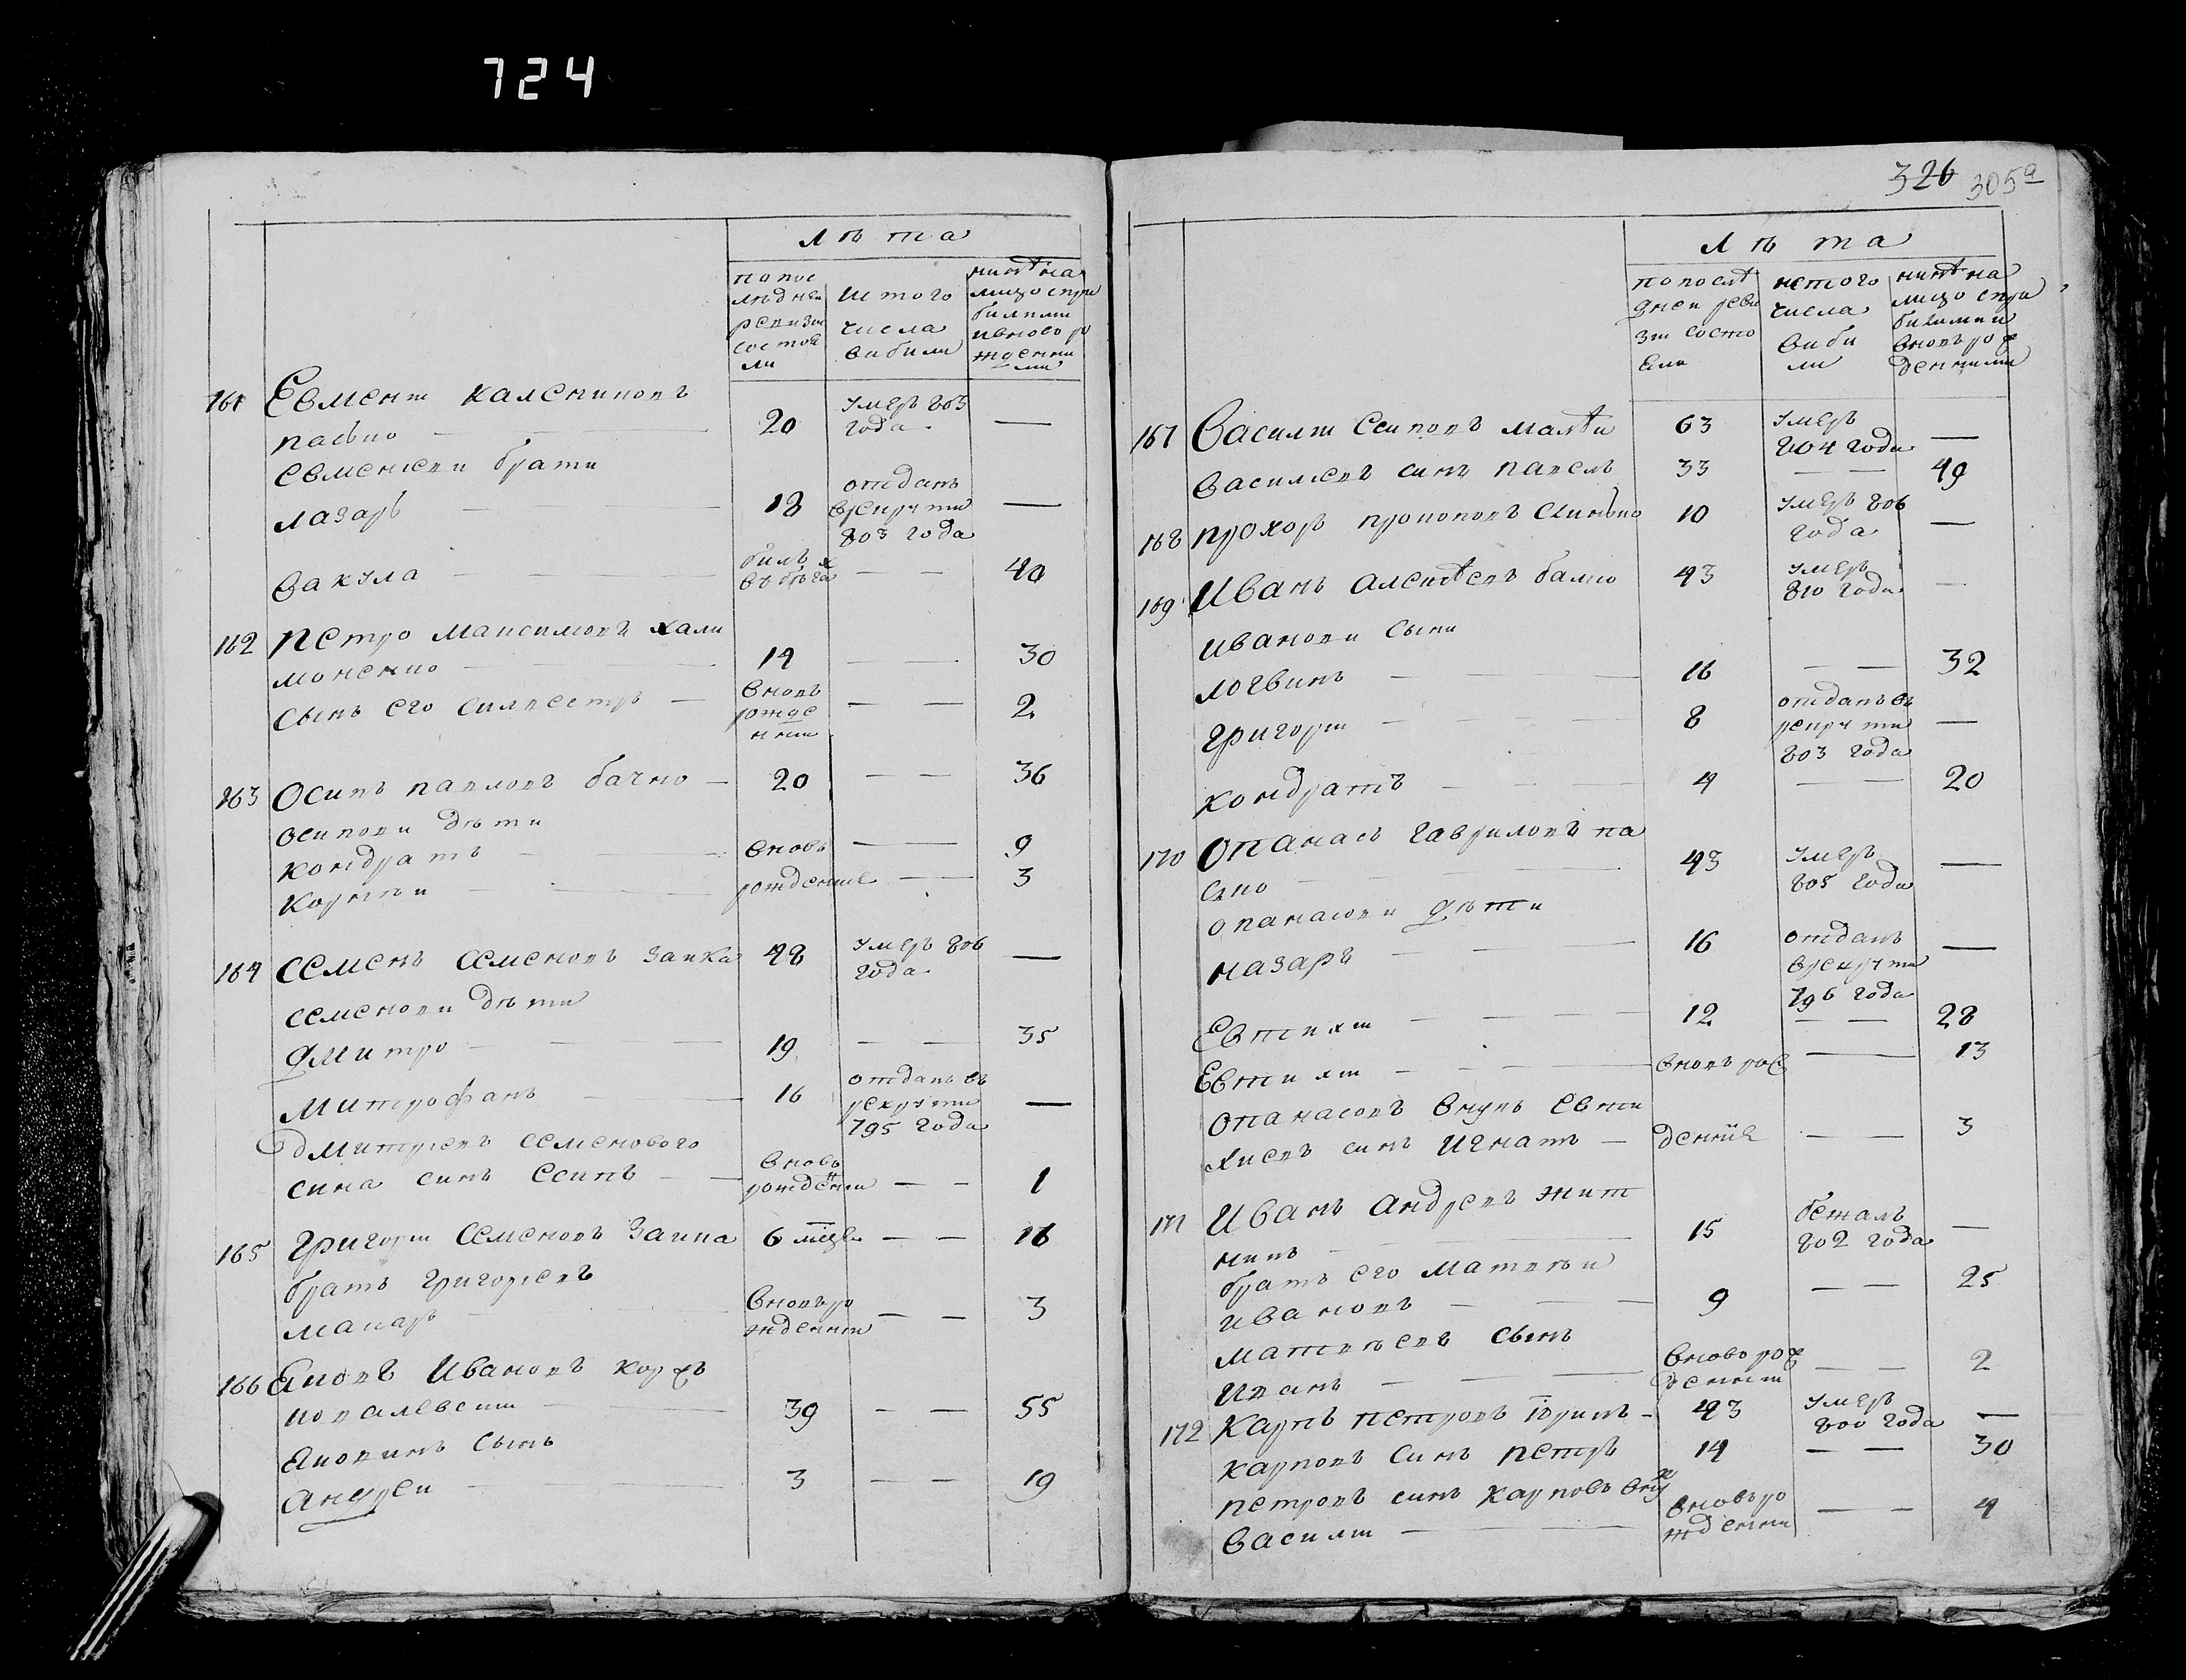 724
лѣта
по пос
лѣдней
ревизи
состоя
ли
ис того
числа
вибили
нинѣ на
лицо спри
билими
ивново ро
жденни
ми
161 Евмени
пасько
20
умеръ 803
года
—
Евменови брати
лазарь
18
отданъ
врекрути
803 года
—
вакула
билъ
въ бѣга
— —
40
162 Петро Максимовъ хали
моненко
14
— —
30
сынъ его силвестръ
вновъ
рожде
нни
— —
2
163 Осипъ павловъ бачко
20
— —
36
осипови дѣти
кондратъ
вновь
— —
9
корнѣи
рожденние
—
3
164 Семенъ семеновъ заика
48
умеръ 806
года
—
семенови дѣти
дмитро
19
— —
35
митрофанъ
16
отданъ въ
рекрути
795 года
—
дмитріевъ семенового
сина синъ есипъ
вновь
рожденни
— —
1
165 Григори Семеновъ Заика
6 мцзв
— —
16
братъ григориевъ
макаръ
вновъ ро
жденни
— —
3
166 Яковъ Ивановъ коржъ
ковалевски
39
— —
55
яковинъ сынъ
андреи
3
— —
19
326 305а
лѣта
по послѣ
дней реви
зии состо
яли
ис того
числа
виби
ли
нинѣ на
лицо спри
билими и
вновъ рож
денними
167 Василии Есиповъ малѣи
63
умеръ
804 года
—
василиевъ синъ павелъ
33
— —
49
168 прохоръ прокоповъ синко
10
умеръ 806
года
—
169 Иванъ алексѣевъ балко
43
умеръ
810 года
—
иванови сыни
логвинъ
16
— —
32
григори
8
отданъ въ
рекрути
803 года
—
кондратъ
4
— —
20
170 опанасъ гавриловъ па
сько
43
умеръ
805 года
—
опанасови дѣти
назаръ
16
отданъ
врекрути
796 года
—
Евтихи
12
— —
28
Евтихи
вновъ рож
—
13
опанасовъ внукъ Евти
хиевъ синъ игнатъ
деннiе
— —
3
171 Иванъ андреевъ жит
никъ
15
бежалъ
802 года
—
братъ его матвѣи
ивановъ
9
— —
25
матвѣевъ сынъ
иванъ
вново рож
денни
— —
2
172 карпъ петровъ
43
умеръ
800 года
—
карповъ синъ петръ
14
— —
30
петровъ синъ карповъ внук
василии
вновъ ро
жденни
— —
4